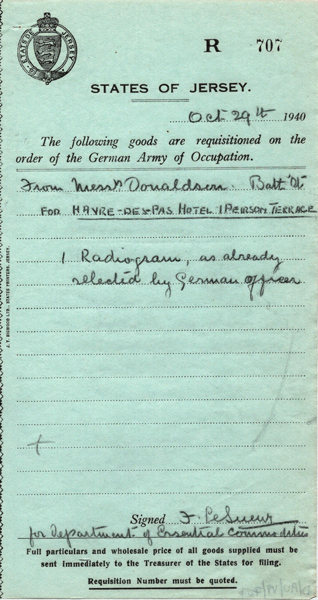 STATES OF JERSEY
R 707
STATES OF JERSEY.
Oct 29th 1940
The following goods are requisitioned on the
order of the German Army of Occupation.
From Messrs Donaldson. Batt St
FOR HAVRE-DES-PAS HOTEL 1 PEIRSON TERRACE
1 Radiogram, as already
selected by German officer
Signed F Le Sueur
for Department of Essential Commodities
Full particulars and wholesale price of all goods supplied must be
sent immediately to the Treasurer of the States for filing.
Requisition Number must be quoted.